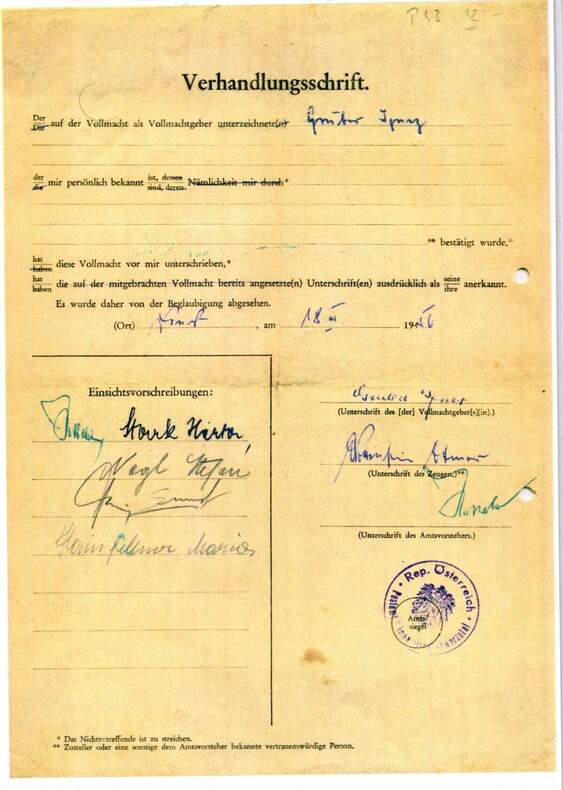 Verhandlungsschrift.
Der
Die auf der Vollmacht als Vollmachtgeber unterzeichnete(r) Gruber Ignaz
der
die mir persönlich bekannt ist, dessen
sind, deren Nämlichkeit mir durch*
** bestätigt wurde,*
hat
haben diese Vollmacht vor mir unterschrieben,*
hat
haben die auf der mitgebrachten Vollmacht bereits angesetzte(n) Unterschrift(en) ausdrücklich als seine
ihre anerkannt.
Es wurde daher von der Beglaubigung abgesehen.
(Ort) , am 18. 19
Einsichtsvorschreibungen:
Stork
Nagl Stefan
Maria
Gruber Ignaz
(Unterschrift des [der] Vollmachtgeber[s][in].)
(Unterschrift des Zeugen.)**
(Unterschrift des Amtsvorstehers.)
Rep. Österreich
Amts-
siegel
* Das Nichtzutreffende ist zu streichen.
** Zusteller oder eine sonstige dem Amtsvorsteher bekannte vertrauenswürdige Person.